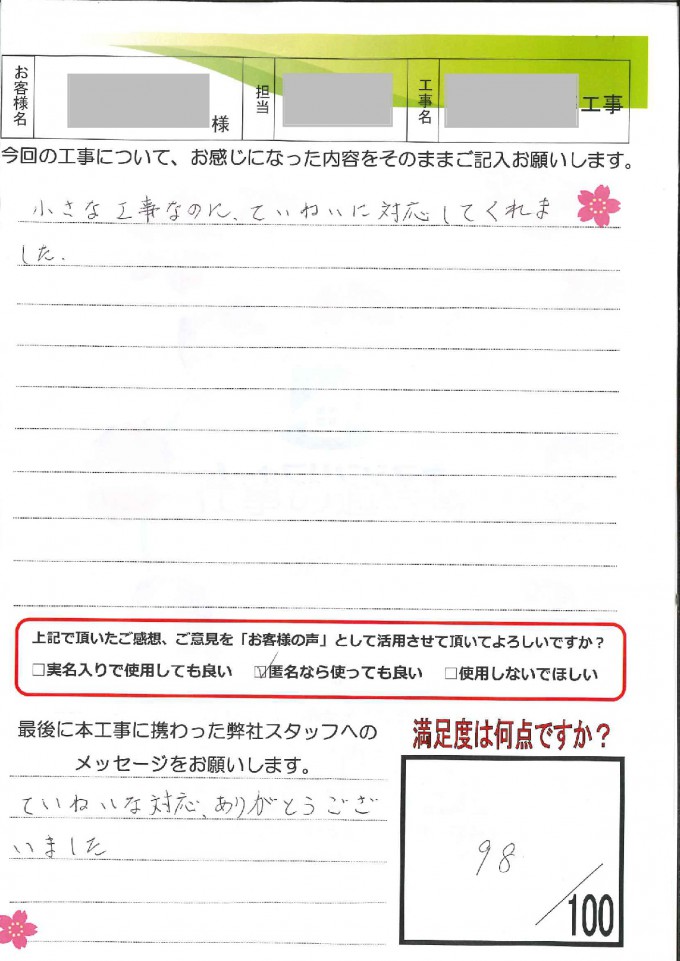 お客様名
様
担当
工事名
工事
今回の工事について、お感じになった内容をそのままご記入お願いします。
小さな工事なのに、ていねいに対応してくれま
した.
上記で頂いたご感想、ご意見を「お客様の声」として活用させて頂いてよろしいですか？
□実名入りで使用しても良い ☑匿名なら使っても良い □使用しないでほしい
最後に本工事に携わった弊社スタッフへの
メッセージをお願いします。
ていねいな対応、ありがとうござ
いました
満足度は何点ですか？
98/100